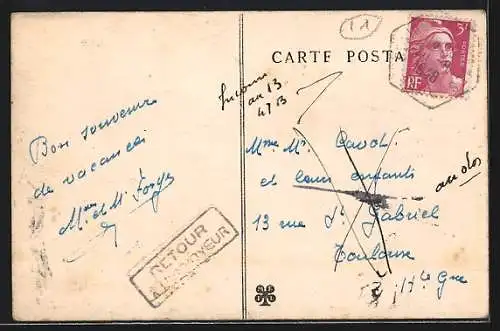 1A
CARTE POSTA
3F
POSTES
RF
Inconnu
au 13
47 B
Bon souvenir
de vacances
Mme et Mr
Mme Mr
et leurs enfants
13 rue St Gabriel
Toulouse
Hte Gne
au dos
RETOUR
A L'ENVOYEUR